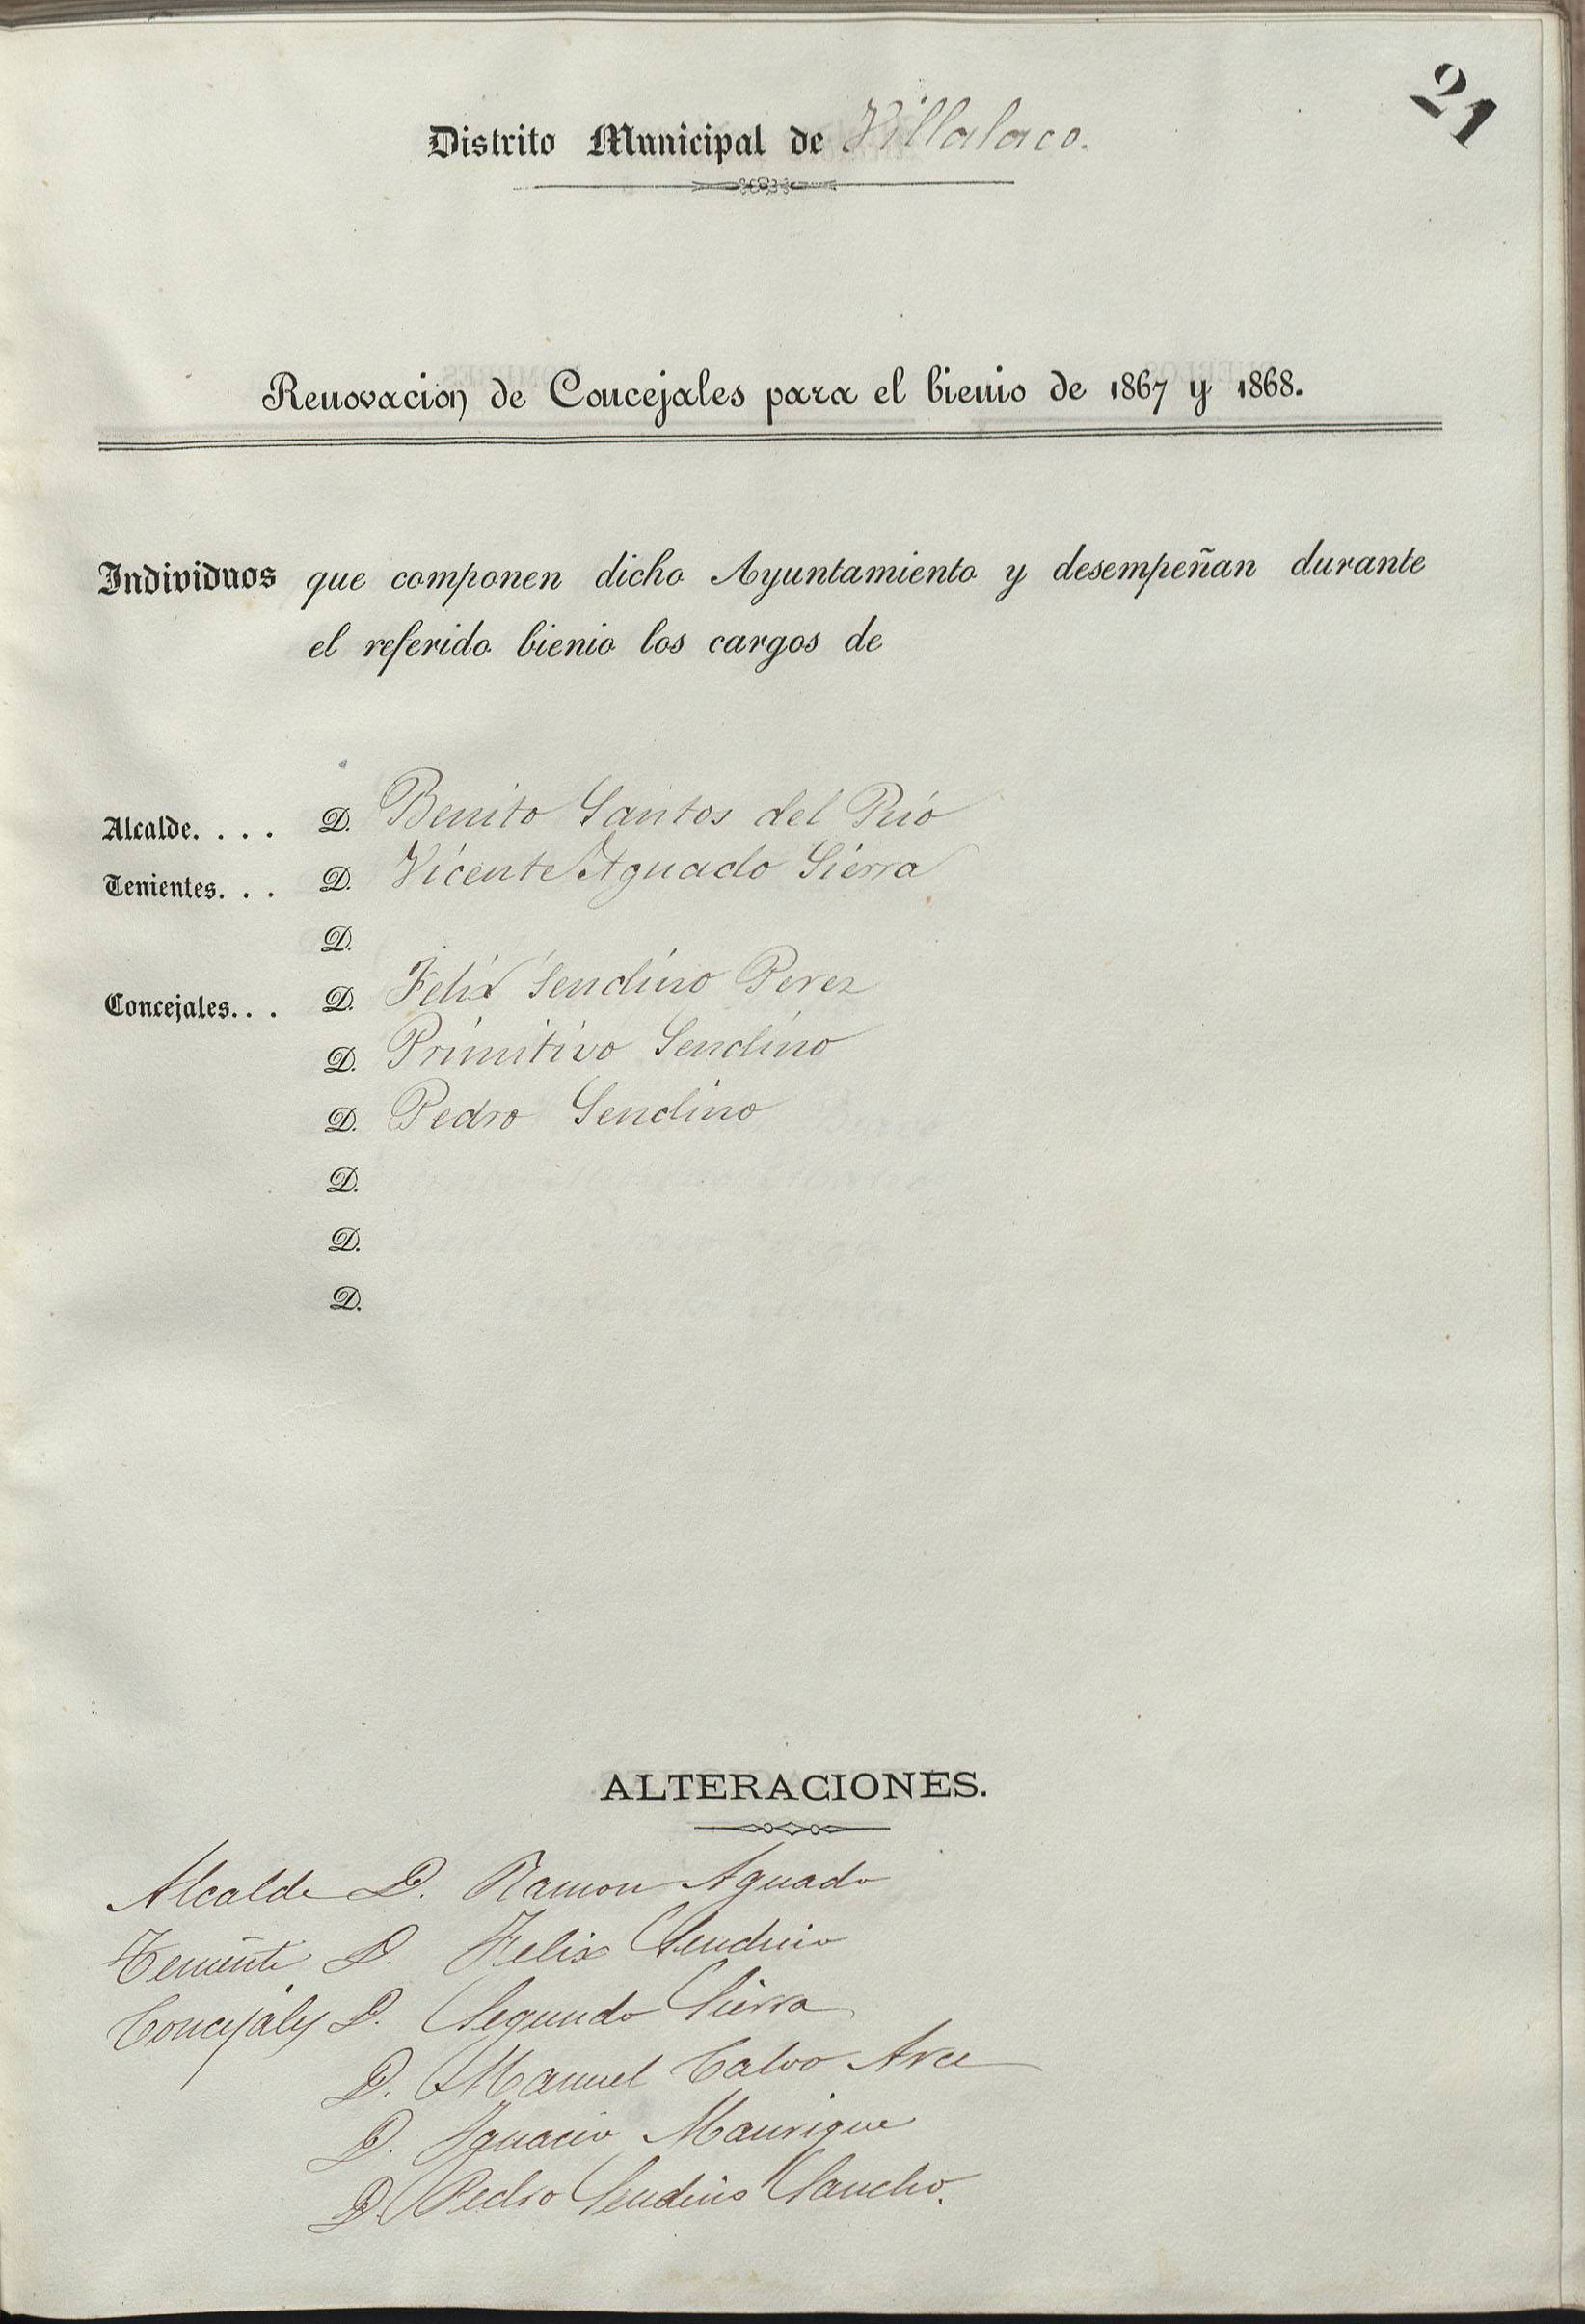 21
Distrito Municipal de Villalaco.
Renovacion de Concejales para el bienio de 1867 y 1868.
Individuos que componen dicho Ayuntamiento y desempeñan durante
el referido bienio los cargos de
Alcalde. . . . D. Benito Santos del Rio
Tenientes. . . D. Vicente Aguado Sierra
D.
Concejales. . . D. Felix Sendino Perez
D. Primitivo Sendino
D. Pedro Sendino
D.
D.
D.
ALTERACIONES.
Alcalde D. Ramon Aguado
Teniente D. Felix Sendino
Concejales D. Segundo Sierra
D. Manuel Calvo Arce
D. Ignacio Manrique
D. Pedro Sendino Sancho.